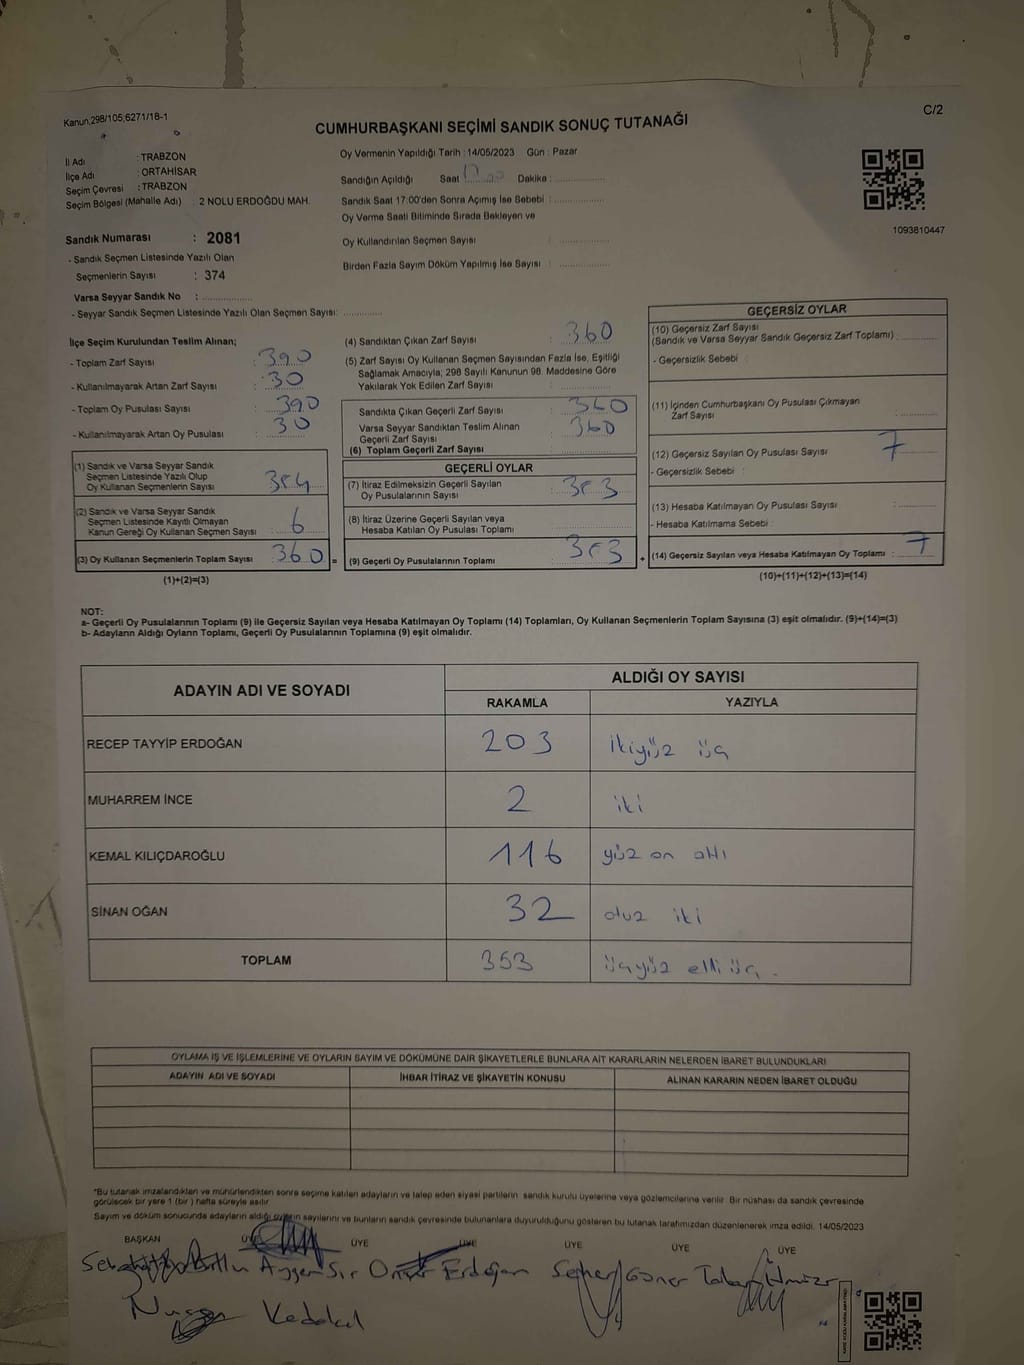 Kanun,298/105,6271/18-1
C/2
CUMHURBAŞKANI SEÇİMİ SANDIK SONUÇ TUTANAĞI
İl Adı : TRABZON
İlçe Adı : ORTAHİSAR
Seçim Çevresi : TRABZON
Seçim Bölgesi (Mahalle Adı) : 2 NOLU ERDOĞDU MAH.
Sandık Numarası : 2081
- Sandık Seçmen Listesinde Yazılı Olan
Seçmenlerin Sayısı : 374
Varsa Seyyar Sandık No : ................
- Seyyar Sandık Seçmen Listesinde Yazılı Olan Seçmen Sayısı: .............
Oy Vermenin Yapıldığı Tarih : 14/05/2023 Gün : Pazar
Sandığın Açıldığı Saat 17:00 Dakika : ................
Sandık Saat 17:00'den Sonra Açımış İse Sebebi : ................
Oy Verme Saati Bitiminde Sırada Bekleyen ve
Oy Kullandırılan Seçmen Sayısı : ................
Birden Fazla Sayım Döküm Yapılmış İse Sayısı : ................
1093810447
İlçe Seçim Kurulundan Teslim Alınan;
- Toplam Zarf Sayısı : 390
- Kullanılmayarak Artan Zarf Sayısı : 30
- Toplam Oy Pusulası Sayısı : 390
- Kullanılmayarak Artan Oy Pusulası : 30
(1) Sandık ve Varsa Seyyar Sandık
Seçmen Listesinde Yazılı Olup
Oy Kullanan Seçmenlerin Sayısı : 354
(2) Sandık ve Varsa Seyyar Sandık
Seçmen Listesinde Kayıtlı Olmayan
Kanun Gereği Oy Kullanan Seçmen Sayısı : 6
(3) Oy Kullanan Seçmenlerin Toplam Sayısı : 360 =
(1)+(2)=(3)
(4) Sandıktan Çıkan Zarf Sayısı : 360
(5) Zarf Sayısı Oy Kullanan Seçmen Sayısından Fazla İse, Eşitliği
Sağlamak Amacıyla; 298 Sayılı Kanunun 98. Maddesine Göre
Yakılarak Yok Edilen Zarf Sayısı : ................
Sandıkta Çıkan Geçerli Zarf Sayısı : 360
Varsa Seyyar Sandıktan Teslim Alınan
Geçerli Zarf Sayısı : 360
(6) Toplam Geçerli Zarf Sayısı
GEÇERLİ OYLAR
(7) İtiraz Edilmeksizin Geçerli Sayılan
Oy Pusulalarının Sayısı : 353
(8) İtiraz Üzerine Geçerli Sayılan veya
Hesaba Katılan Oy Pusulası Toplamı : ................
(9) Geçerli Oy Pusulalarının Toplamı : 353 +
GEÇERSİZ OYLAR
(10) Geçersiz Zarf Sayısı
(Sandık ve Varsa Seyyar Sandık Geçersiz Zarf Toplamı) : ............
- Geçersizlik Sebebi :
(11) İçinden Cumhurbaşkanı Oy Pusulası Çıkmayan
Zarf Sayısı : ............
(12) Geçersiz Sayılan Oy Pusulası Sayısı : 7
- Geçersizlik Sebebi :
(13) Hesaba Katılmayan Oy Pusulası Sayısı : ............
- Hesaba Katılmama Sebebi :
(14) Geçersiz Sayılan veya Hesaba Katılmayan Oy Toplamı : 7
(10)+(11)+(12)+(13)=(14)
NOT:
a- Geçerli Oy Pusulalarının Toplamı (9) ile Geçersiz Sayılan veya Hesaba Katılmayan Oy Toplamı (14) Toplamları, Oy Kullanan Seçmenlerin Toplam Sayısına (3) eşit olmalıdır. (9)+(14)=(3)
b- Adayların Aldığı Oyların Toplamı, Geçerli Oy Pusulalarının Toplamına (9) eşit olmalıdır.
ADAYIN ADI VE SOYADI ALDIĞI OY SAYISI
RAKAMLA YAZIYLA
RECEP TAYYİP ERDOĞAN 203 ikiyüz üç
MUHARREM İNCE 2 iki
KEMAL KILIÇDAROĞLU 116 yüz on altı
SİNAN OĞAN 32 otuz iki
TOPLAM 353 üçyüz elli üç.
OYLAMA İŞ VE İŞLEMLERİNE VE OYLARIN SAYIM VE DÖKÜMÜNE DAİR ŞİKAYETLERLE BUNLARA AİT KARARLARIN NELERDEN İBARET BULUNDUKLARI
ADAYIN ADI VE SOYADI İHBAR İTİRAZ VE ŞİKAYETİN KONUSU ALINAN KARARIN NEDEN İBARET OLDUĞU
*Bu tutanak imzalandıktan ve mühürlendikten sonra seçime katılan adayların ve talep eden siyasi partilerin sandık kurulu üyelerine veya gözlemcilerine verilir. Bir nüshası da sandık çevresinde
görülecek bir yere 1 (bir) hafta süreyle asılır.
Sayım ve döküm sonucunda adayların aldığı oyların sayılarını ve bunların sandık çevresinde bulunanlara duyurulduğunu gösteren bu tutanak tarafımızdan düzenlenerek imza edildi. 14/05/2023
BAŞKAN ÜYE ÜYE ÜYE ÜYE ÜYE
Ayşen Sır Erdoğan